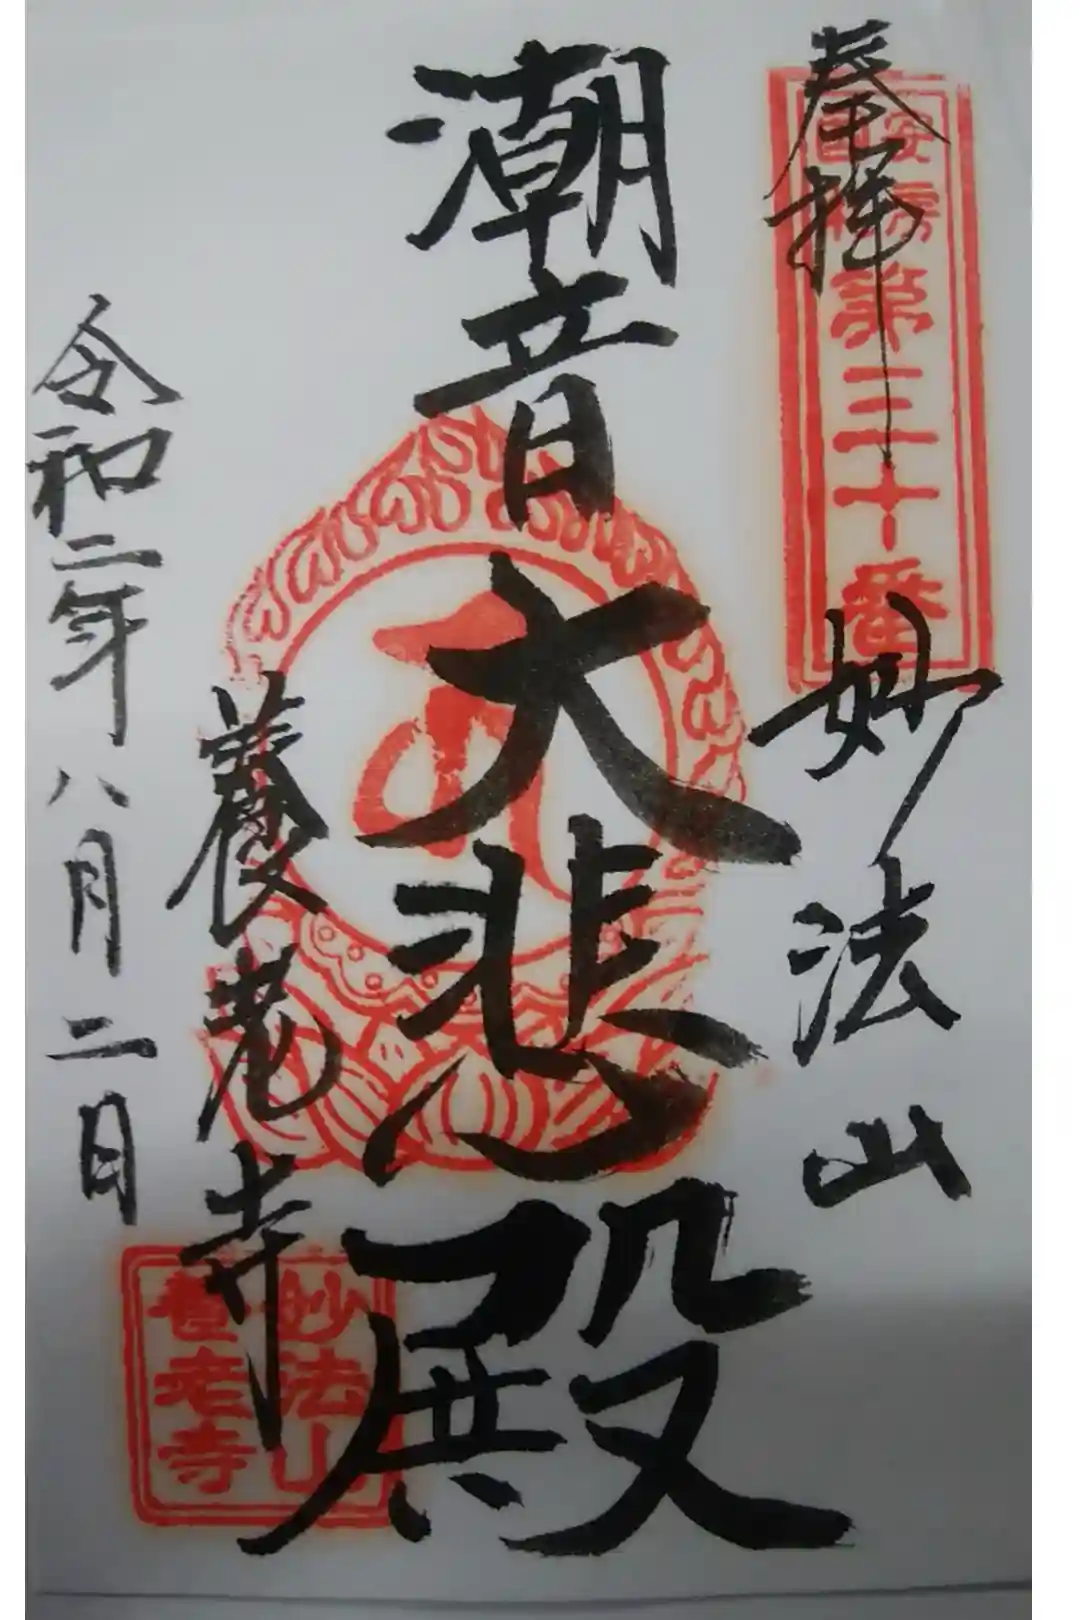 奉拝
安房
国札
第三十番
妙法山
潮音大悲殿
養老寺
妙法山
養老寺
令和二年八月二日